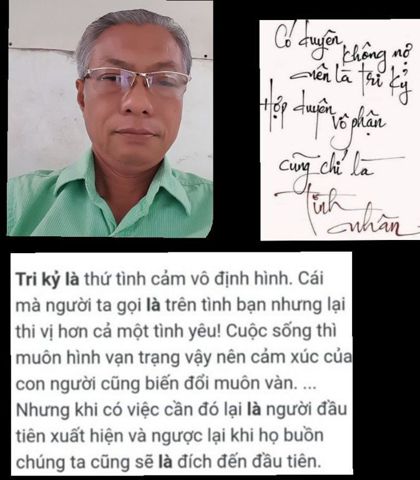 Có duyên không nợ
nên là tri kỷ
Hợp duyên vô phận
cũng chỉ là
tình nhân
Tri kỷ là thứ tình cảm vô định hình. Cái
mà người ta gọi là trên tình bạn nhưng lại
thi vị hơn cả một tình yêu! Cuộc sống thì
muôn hình vạn trạng vậy nên cảm xúc của
con người cũng biến đổi muôn vàn. ...
Nhưng khi có việc cần đó lại là người đầu
tiên xuất hiện và ngược lại khi họ buồn
chúng ta cũng sẽ là đích đến đầu tiên.